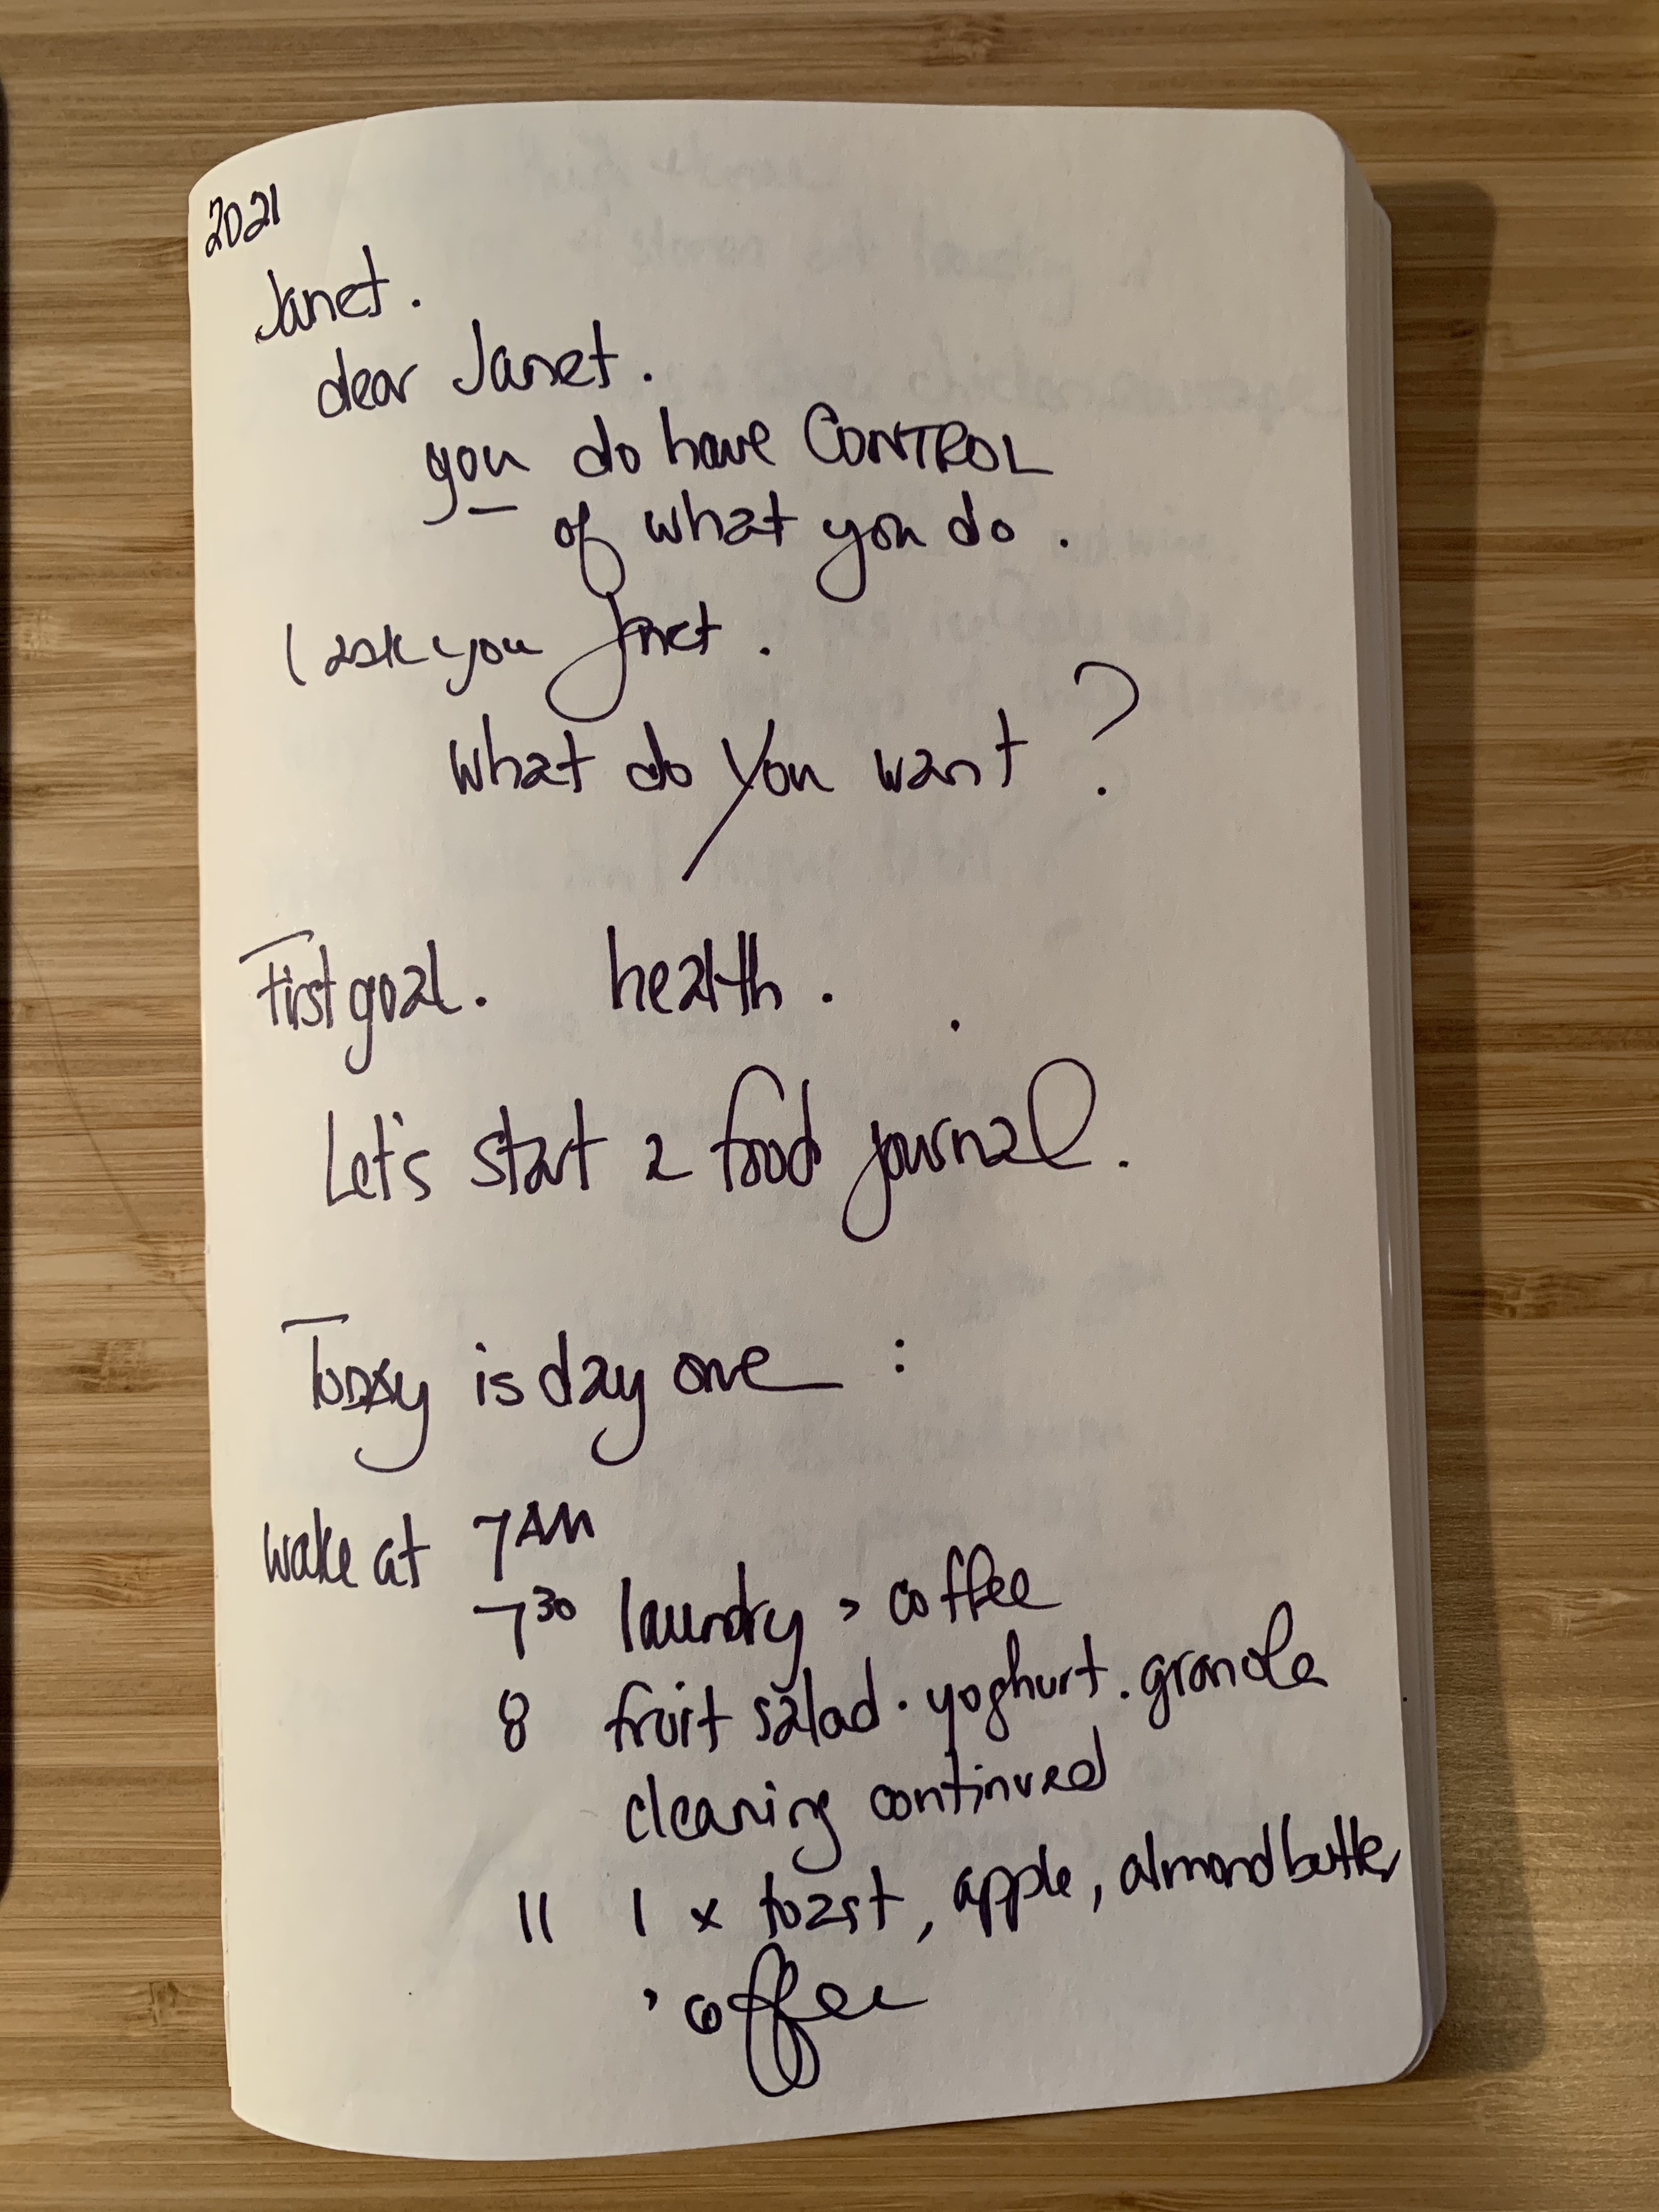 2021
Janet.
dear Janet.
you do have CONTROL
of what you do.
I ask you Janet.
What do you want?
First goal. health.
Let's start a food journal.
Today is day one :
wake at 7AM
7 30 laundry > coffee
8 fruit salad . yoghurt . granola
cleaning continued
11 1 x toast, apple, almond butter
> coffee